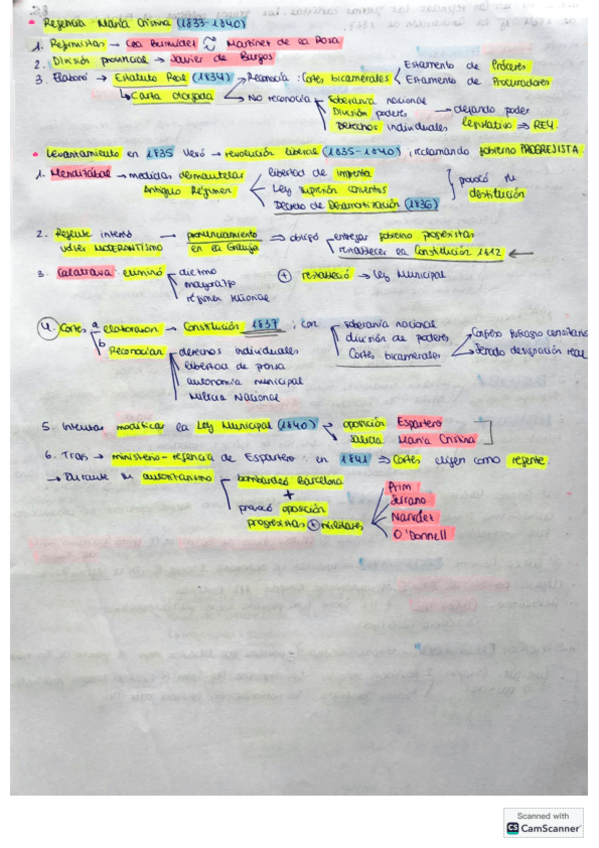 Regencia María Cristina (1833-1840)
1. Reformistas → Cea Bermúdez Martínez de la Rosa
2. División provincial → Javier de Burgos
3. Elaboró → Estatuto Real (1834) Reconocía: Cortes bicamerales Estamento de Próceres
Estamento de Procuradores
Carta otorgada No reconocía Soberanía nacional
División poderes → dejando poder
Derechos individuales legislativo ⇒ REY.
Levantamiento en 1835 llevó → revolución liberal (1835-1840), reclamando gobierno PROGRESISTA.
1. Mendizábal → medidas desmantelar libertad de imprenta
Antiguo Régimen Ley supresión conventos provocó su
Decreto de Desamortización (1836) destitución
2. Regente intentó → pronunciamiento ⇒ obligó entregar gobierno progresistas
volver MODERANTISMO en La Granja restablecer la Constitución 1812
3. Calatrava eliminó diezmo + restableció → Ley Municipal
mayorazgo
régimen señorial
4. Cortes a elaboraron → Constitución 1837, con soberanía nacional
b división de poderes Congreso sufragio censitario
Reconocían derechos individuales Cortes bicamerales Senado designación real
libertad de prensa
autonomía municipal
Milicia Nacional
5. Intentar modificar la Ley Municipal (1840) oposición Espartero
salida María Cristina
6. Tras → ministerio-regencia de Espartero en 1841 ⇒ Cortes eligen como regente.
→ Durante su autoritarismo bombardeó Barcelona
+
provocó oposición
progresistas + militares
Prim
Serrano
Narváez
O'Donnell
Scanned with
CS CamScanner